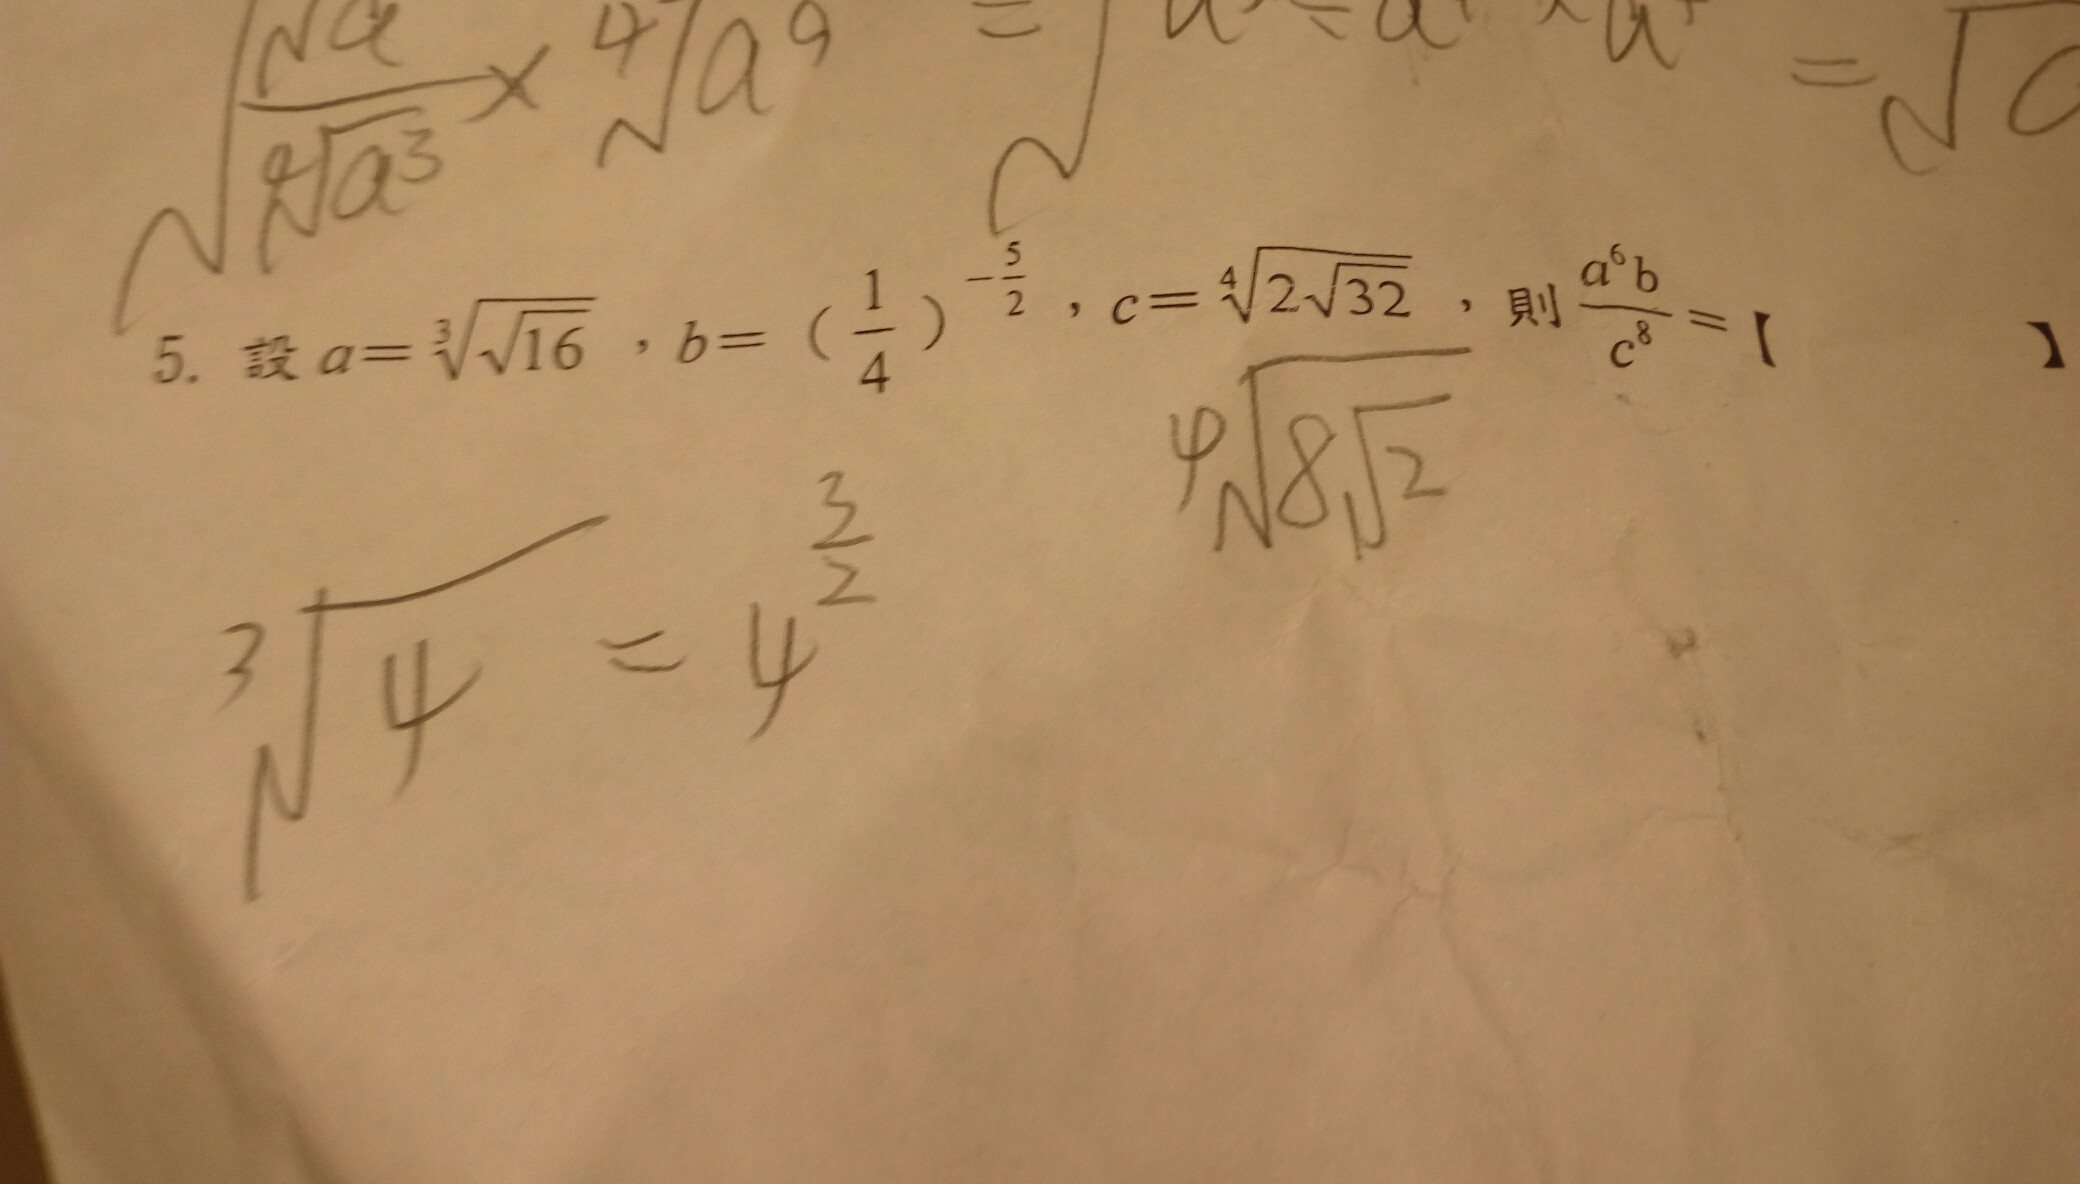 √(√a/⁴√a³ × ⁴√a⁹) =
5. 設 a=³√√16 ，b=（1/4）^(-5/2) ，c=⁴√2√32 ，則 a⁶b/c⁸ =【 】
⁴√8√2
³√4 = 4^(3/2)